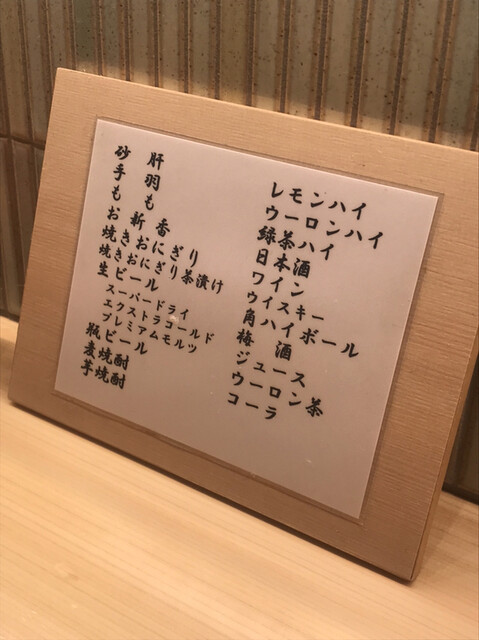 砂肝
手羽
もも
お新香
焼きおにぎり
焼きおにぎり茶漬け
生ビール
スーパードライ
エクストラコールド
プレミアムモルツ
瓶ビール
麦焼酎
芋焼酎
レモンハイ
ウーロンハイ
緑茶ハイ
日本酒
ワイン
ウイスキー
角ハイボール
梅酒
ジュース
ウーロン茶
コーラ